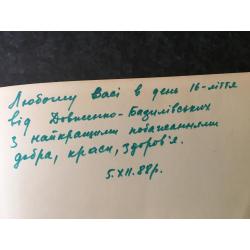 Любому Васі в день 16-ліття
від Довженко-Базилівських
з найкращими побажаннями
добра, краси, здоров'я.
5.XII.88р.